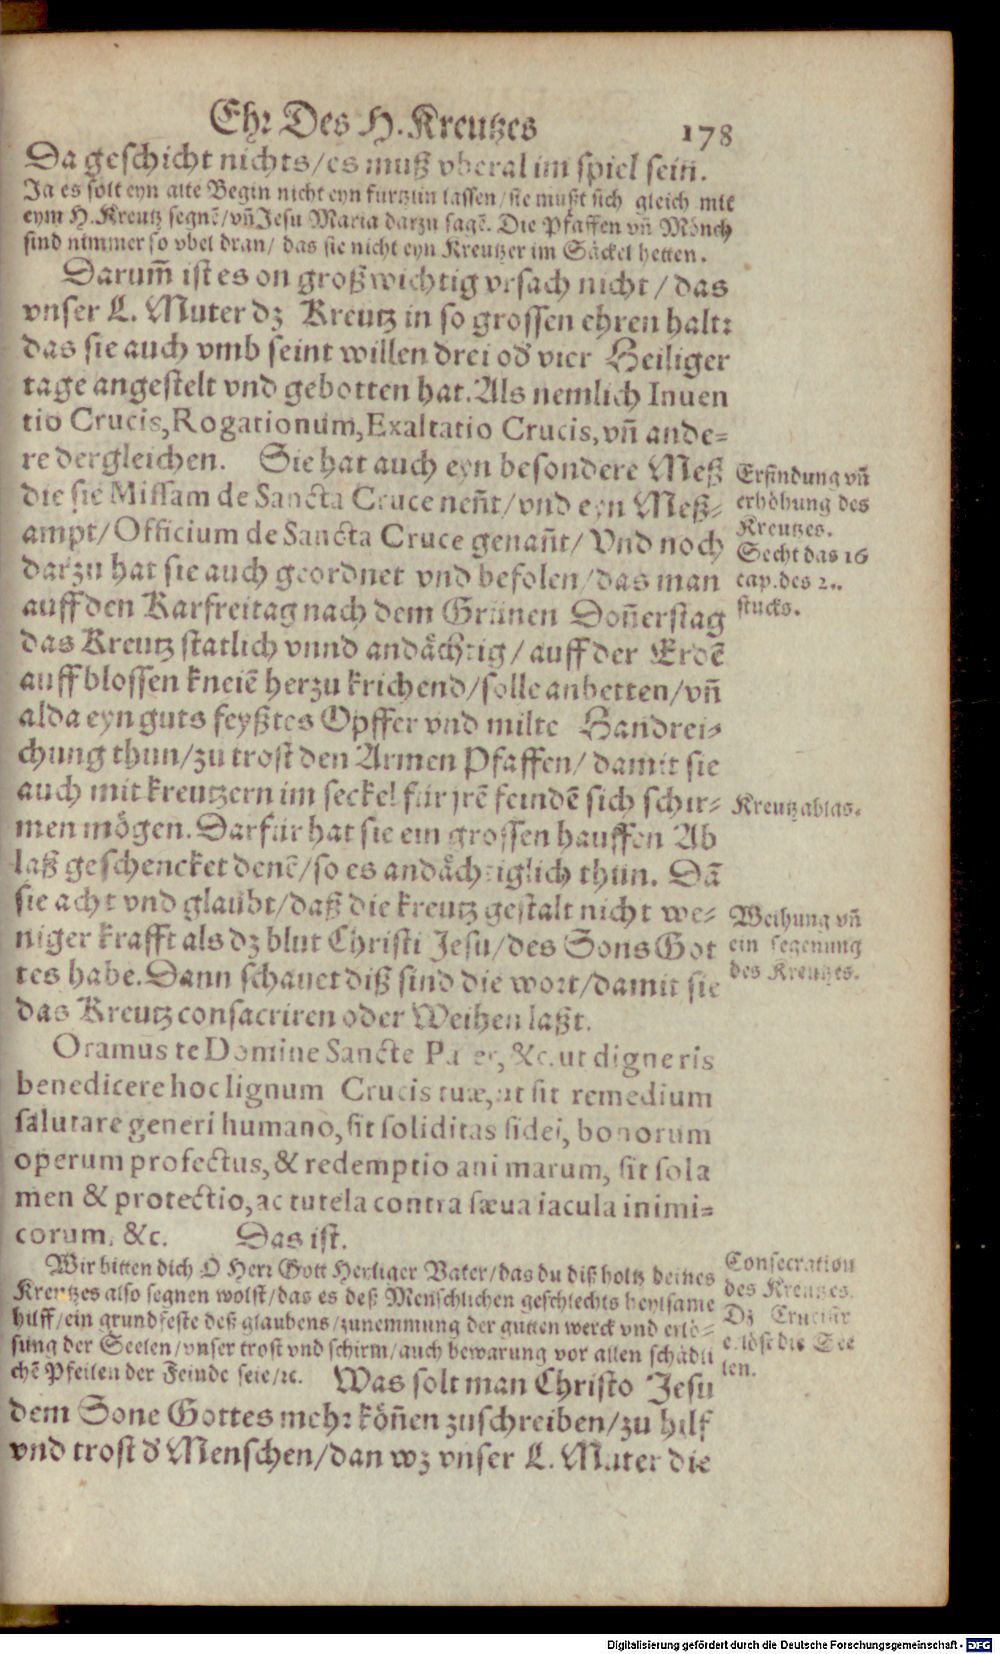 Ehr Des H. Kreutzes 178
Da geschicht nichts/es muß vberal im spiel sein.
Ja es solt eyn alte Begin nicht eyn furtzlin lassen/sie mußt sich gleich mit
eym H. Kreutz segnẽ/vñ Jesu Maria darzu sagẽ. Die Pfaffen vñ Mönch
sind nimmer so vbel dran/ das sie nicht eyn Kreutzer im Säckel hetten.
Darum̃ ist es on groß wichtig vrsach nicht/das
vnser L. Muter dz Kreutz in so grossen ehren halt:
das sie auch vmb seint willen drei od' vier Heiliger
tage angestelt vnd gebotten hat. Als nemlich Inuen
tio Crucis, Rogationum, Exaltatio Crucis, vñ ande=
re dergleichen. Sie hat auch eyn besondere Meß
die sie Missam de Sancta Cruce neñt/vnd eyn Meß=
ampt/Officium de Sancta Cruce genañt/Vnd noch
darzu hat sie auch geordnet vnd befolen/das man
auff den Karfreitag nach dem Grünen Doñerstag
das Kreutz statlich vnnd andächtig/auff der Erdẽ
auff blossen kneiẽ herzu krichend/solle anbetten/vñ
alda eyn guts feyßtes Opffer vnd milte Handrei=
chung thun/zu trost den Armen Pfaffen/damit sie
auch mit kreutzern im seckel für jrẽ feindẽ sich schir=
men mögen. Darfür hat sie ein grossen hauffen Ab
laß geschencket denẽ/so es andächtiglich thun. Dã
sie acht vnd glaubt/daß die kreutz gestalt nicht we=
niger krafft als dz blut Christi Jesu/des Sons Got
tes habe. Dann schauet diß sind die wort/damit sie
das Kreutz consacriren oder Weihen laßt.
Oramus te Domine Sancte Pater, &c. ut digneris
benedicere hoc lignum Crucis tuæ, ut sit remedium
salutare generi humano, sit soliditas fidei, bonorum
operum profectus, & redemptio animarum, sit sola
men & protectio, ac tutela contra sæua iacula inimi=
corum, &c. Das ist.
Wir bitten dich O Herr Gott Heyliger Vater/das du diß holtz deines
Kreutzes also segnen wolst/das es deß Menschlichen geschlechts heylsame
hilff/ein grundfeste deß glaubens/zunemmung der gutten werck vnd erlö=
sung der Seelen/vnser trost vnd schirm/auch bewarung vor allen schädli
chẽ Pfeilen der Feinde seie/ꝛc. Was solt man Christo Jesu
dem Sone Gottes mehr köñen zuschreiben/zu hilf
vnd trost d' Menschen/dan wz vnser L. Muter die
Erfindung vñ
erhöhung des
Kreutzes.
Secht das 16
cap. des 2.
stucks.
Kreutzablas.
Weihung vñ
ein segenung
des Kreutzes.
Consecration
des Kreutzes.
Dz Crucifix
erlöst die See
len.
Digitalisierung gefördert durch die Deutsche Forschungsgemeinschaft - DFG